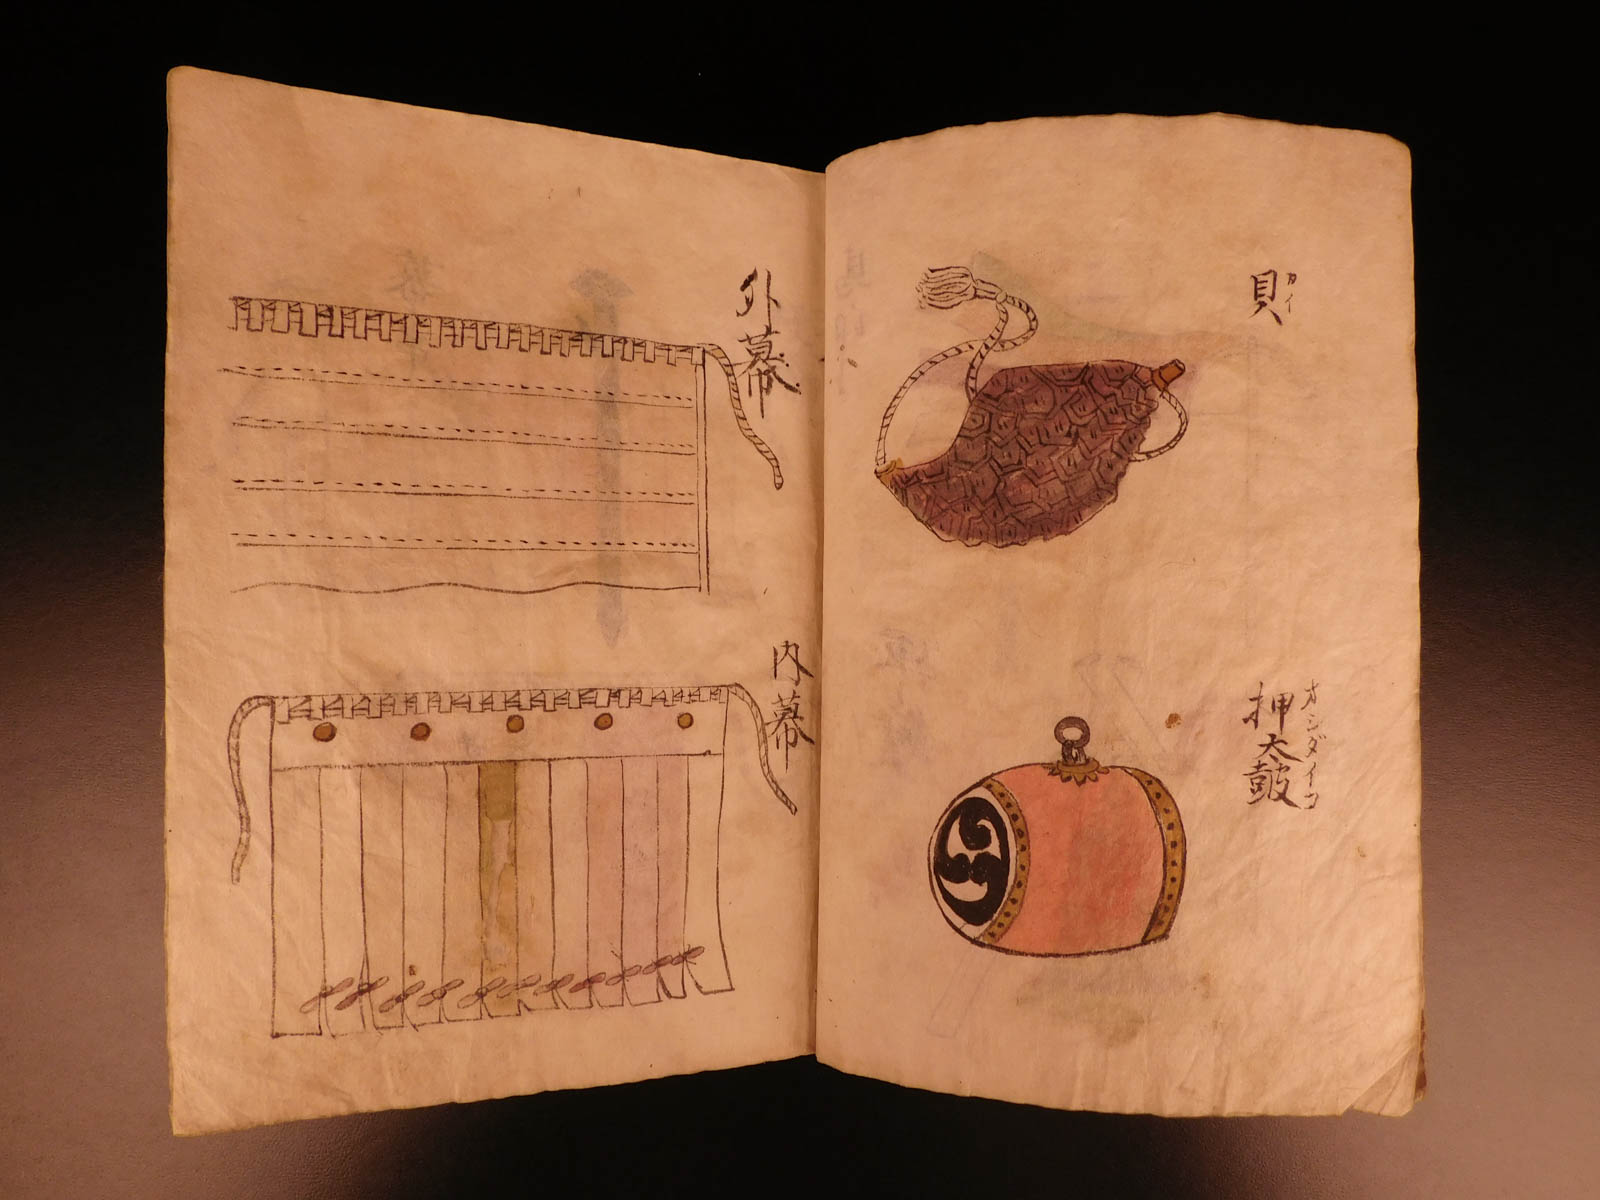 貝
カイ
押太鼓
オシダイコ
外幕
内幕